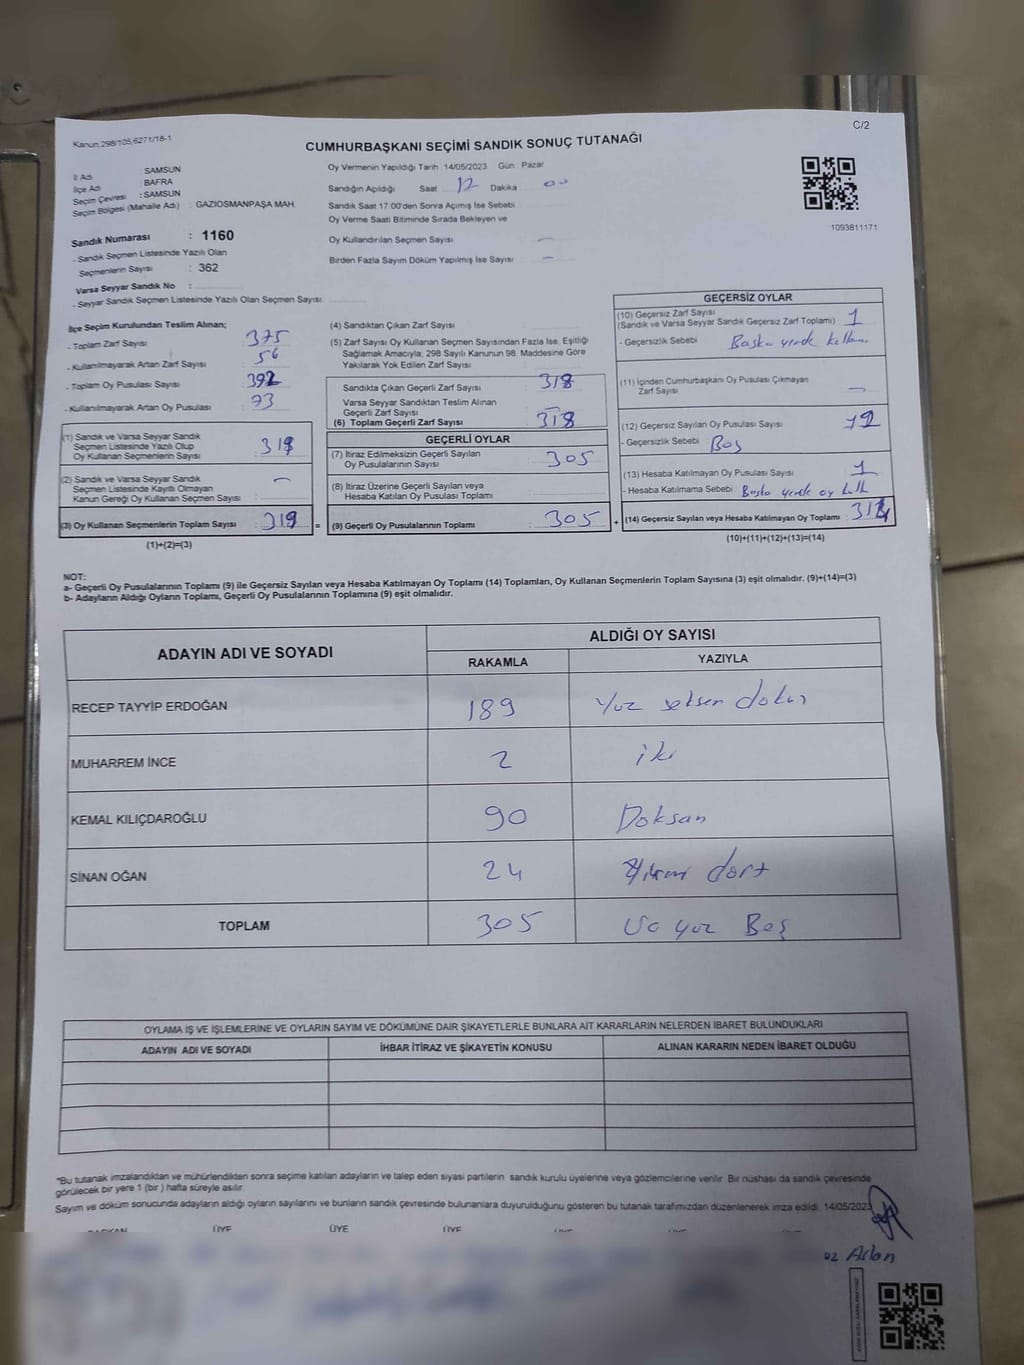 Kanun;298/105,6271/18-1
C/2
CUMHURBAŞKANI SEÇİMİ SANDIK SONUÇ TUTANAĞI
İl Adı : SAMSUN
İlçe Adı : BAFRA
Seçim Çevresi : SAMSUN
Seçim Bölgesi (Mahalle Adı) : GAZİOSMANPAŞA MAH.
Sandık Numarası : 1160
- Sandık Seçmen Listesinde Yazılı Olan
Seçmenlerin Sayısı : 362
Varsa Seyyar Sandık No :
- Seyyar Sandık Seçmen Listesinde Yazılı Olan Seçmen Sayısı:
Oy Vermenin Yapıldığı Tarih :14/05/2023 Gün : Pazar
Sandığın Açıldığı Saat : 17 Dakika : 00
Sandık Saat 17:00'den Sonra Açımış İse Sebebi :
Oy Verme Saati Bitiminde Sırada Bekleyen ve
Oy Kullandırılan Seçmen Sayısı : —
Birden Fazla Sayım Döküm Yapılmış İse Sayısı : —
1093811171
İlçe Seçim Kurulundan Teslim Alınan;
- Toplam Zarf Sayısı : 375
- Kullanılmayarak Artan Zarf Sayısı : 56
- Toplam Oy Pusulası Sayısı : 392
- Kullanılmayarak Artan Oy Pusulası : 73
(1) Sandık ve Varsa Seyyar Sandık
Seçmen Listesinde Yazılı Olup
Oy Kullanan Seçmenlerin Sayısı : 319
(2) Sandık ve Varsa Seyyar Sandık
Seçmen Listesinde Kayıtlı Olmayan
Kanun Gereği Oy Kullanan Seçmen Sayısı : —
(3) Oy Kullanan Seçmenlerin Toplam Sayısı : 319 =
(1)+(2)=(3)
(4) Sandıktan Çıkan Zarf Sayısı :
(5) Zarf Sayısı Oy Kullanan Seçmen Sayısından Fazla İse, Eşitliği
Sağlamak Amacıyla; 298 Sayılı Kanunun 98. Maddesine Göre
Yakılarak Yok Edilen Zarf Sayısı :
Sandıkta Çıkan Geçerli Zarf Sayısı : 318
Varsa Seyyar Sandıktan Teslim Alınan
Geçerli Zarf Sayısı : —
(6) Toplam Geçerli Zarf Sayısı : 318
GEÇERLİ OYLAR
(7) İtiraz Edilmeksizin Geçerli Sayılan
Oy Pusulalarının Sayısı : 305
(8) İtiraz Üzerine Geçerli Sayılan veya
Hesaba Katılan Oy Pusulası Toplamı :
(9) Geçerli Oy Pusulalarının Toplamı : 305 +
GEÇERSİZ OYLAR
(10) Geçersiz Zarf Sayısı
(Sandık ve Varsa Seyyar Sandık Geçersiz Zarf Toplamı) : 1
- Geçersizlik Sebebi : Başka yerde
(11) İçinden Cumhurbaşkanı Oy Pusulası Çıkmayan
Zarf Sayısı : —
(12) Geçersiz Sayılan Oy Pusulası Sayısı : 12
- Geçersizlik Sebebi : Boş
(13) Hesaba Katılmayan Oy Pusulası Sayısı : 1
- Hesaba Katılmama Sebebi : Başka yerde oy
(14) Geçersiz Sayılan veya Hesaba Katılmayan Oy Toplamı :
(10)+(11)+(12)+(13)=(14)
NOT:
a- Geçerli Oy Pusulalarının Toplamı (9) ile Geçersiz Sayılan veya Hesaba Katılmayan Oy Toplamı (14) Toplamları, Oy Kullanan Seçmenlerin Toplam Sayısına (3) eşit olmalıdır. (9)+(14)=(3)
b- Adayların Aldığı Oyların Toplamı, Geçerli Oy Pusulalarının Toplamına (9) eşit olmalıdır.
ADAYIN ADI VE SOYADI
ALDIĞI OY SAYISI
RAKAMLA YAZIYLA
RECEP TAYYİP ERDOĞAN 189 Yüz seksen dokuz
MUHARREM İNCE 2 iki
KEMAL KILIÇDAROĞLU 90 Doksan
SİNAN OĞAN 24 Yirmi dört
TOPLAM 305 Uc yuz Beş
OYLAMA İŞ VE İŞLEMLERİNE VE OYLARIN SAYIM VE DÖKÜMÜNE DAİR ŞİKAYETLERLE BUNLARA AİT KARARLARIN NELERDEN İBARET BULUNDUKLARI
ADAYIN ADI VE SOYADI İHBAR İTİRAZ VE ŞİKAYETİN KONUSU ALINAN KARARIN NEDEN İBARET OLDUĞU
*Bu tutanak imzalandıktan ve mühürlendikten sonra seçime katılan adayların ve talep eden siyasi partilerin sandık kurulu üyelerine veya gözlemcilerine verilir. Bir nüshası da sandık çevresinde
görülecek bir yere 1 (bir ) hafta süreyle asılır.
Sayım ve döküm sonucunda adayların aldığı oyların sayılarını ve bunların sandık çevresinde bulunanlara duyurulduğunu gösteren bu tutanak tarafımızdan düzenlenerek imza edildi. 14/05/2023
BAŞKAN ÜYE ÜYE ÜYE ÜYE ÜYE ÜYE
uz Aslan